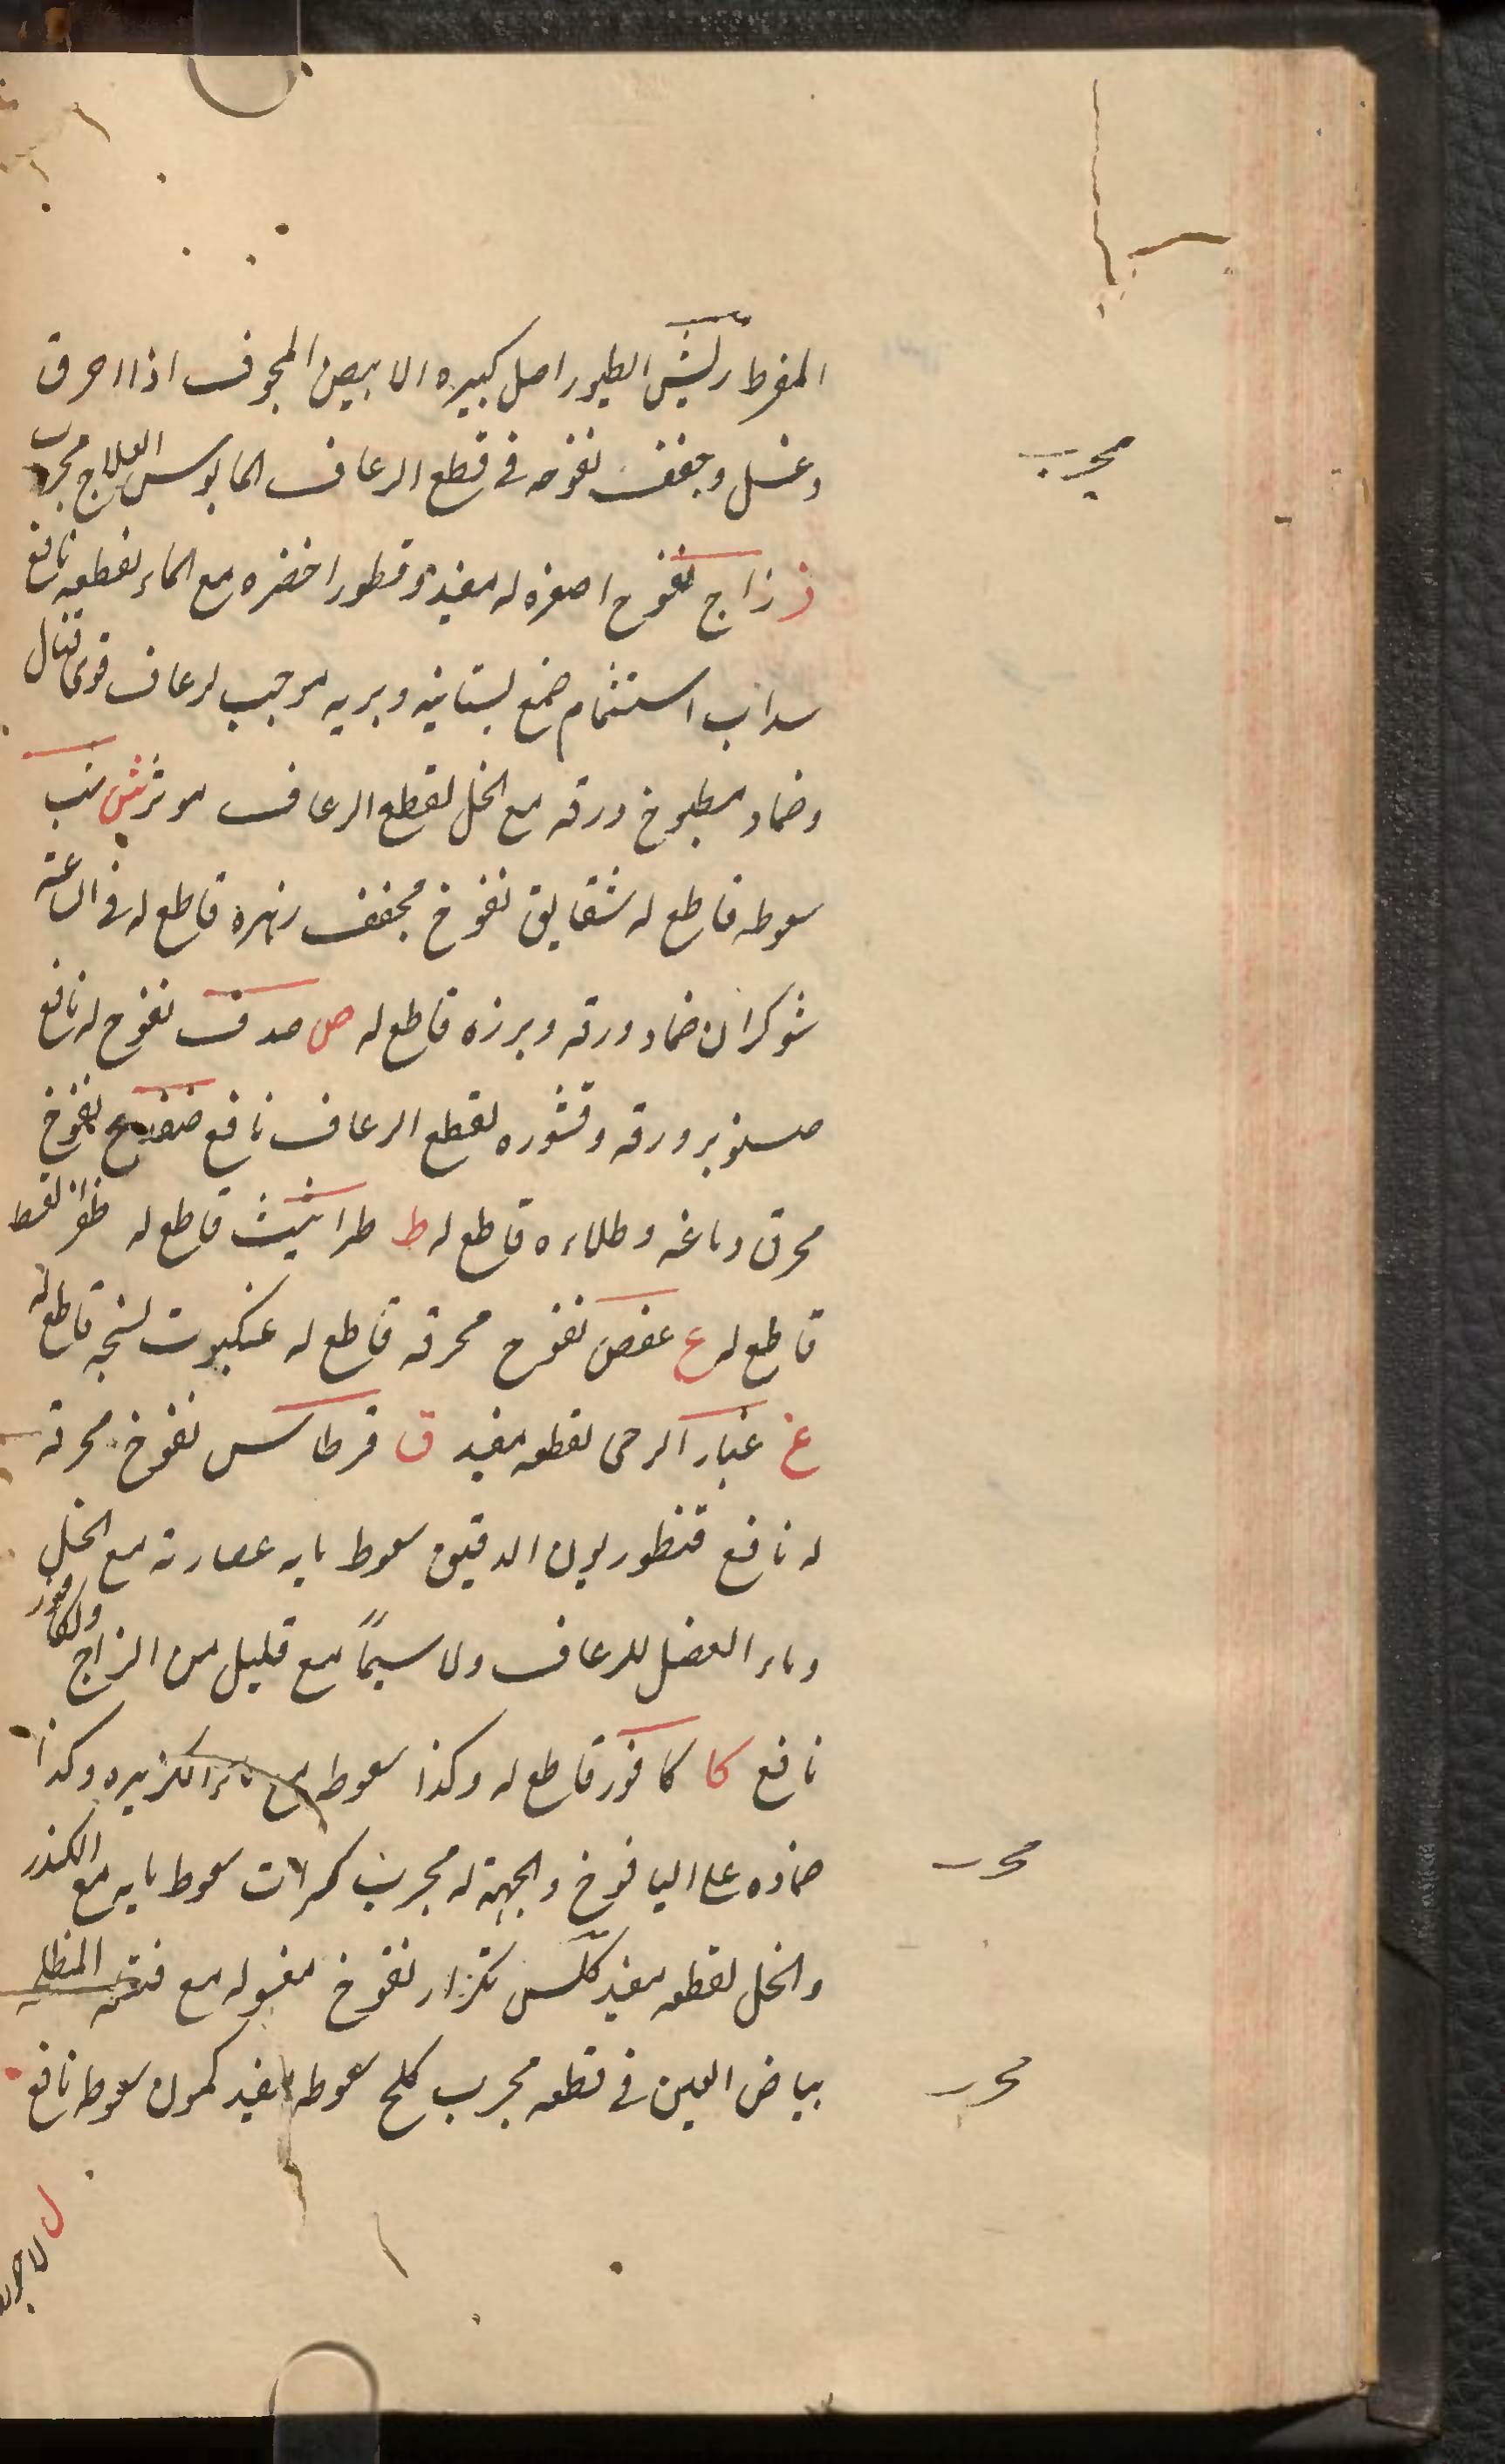 المفرط ريش الطيور اصل كبيره الابيض المجوف اذا احرق
وغسل وجفف نفوخه فى قطع الرعاف المايوس العلاج مجرب
مجرب
ز زاج نفوخ اصفره له مفيد وقطور اخضره مع الماء لقطعه نافع
سداب استشمام صمغ بستانيه وبريه موجب لرعاف قوى قتال
وضماد مطبوخ ورقه مع الخل لقطع الرعاف موثر ش شب
سعوطه قاطع له شقايق نفوخ مجفف زهره قاطع له فى الساعته
شوكران ضماد ورقه وبرزه قاطع له ص صدف نفوخ له نافع
صنوبر ورقه وقشوره لقطع الرعاف نافع ضفدع نفوخ
محرق دماغه وطلاءه قاطع له ط طراثيث قاطع له
قاطع له ع عفص نفوخ محرقه قاطع له عنكبوت نسجه قاطع له
غ غبار الرحى لقطعه مفيد ق قرطاس نفوخ محرقه
له نافع قنطوريون الدقيق سعوط مايه عصارته مع الخل
وماء البصل للرعاف ولا سيماً مع قليل من الزاج والكافور
نافع كا كافور قاطع له وكذا سعوط مع ماء الكزبره وكذا
ضماده على اليافوخ والجبهة له مجرب كراث سعوط مايه مع الكندر
محرب
والخل لقطعه مفيد كلس نفوخ مغسوله مع
بياض البيض فى قطعه مجرب كلخ سعوطه مفيد كمون سعوطه نافع
محرب
ل